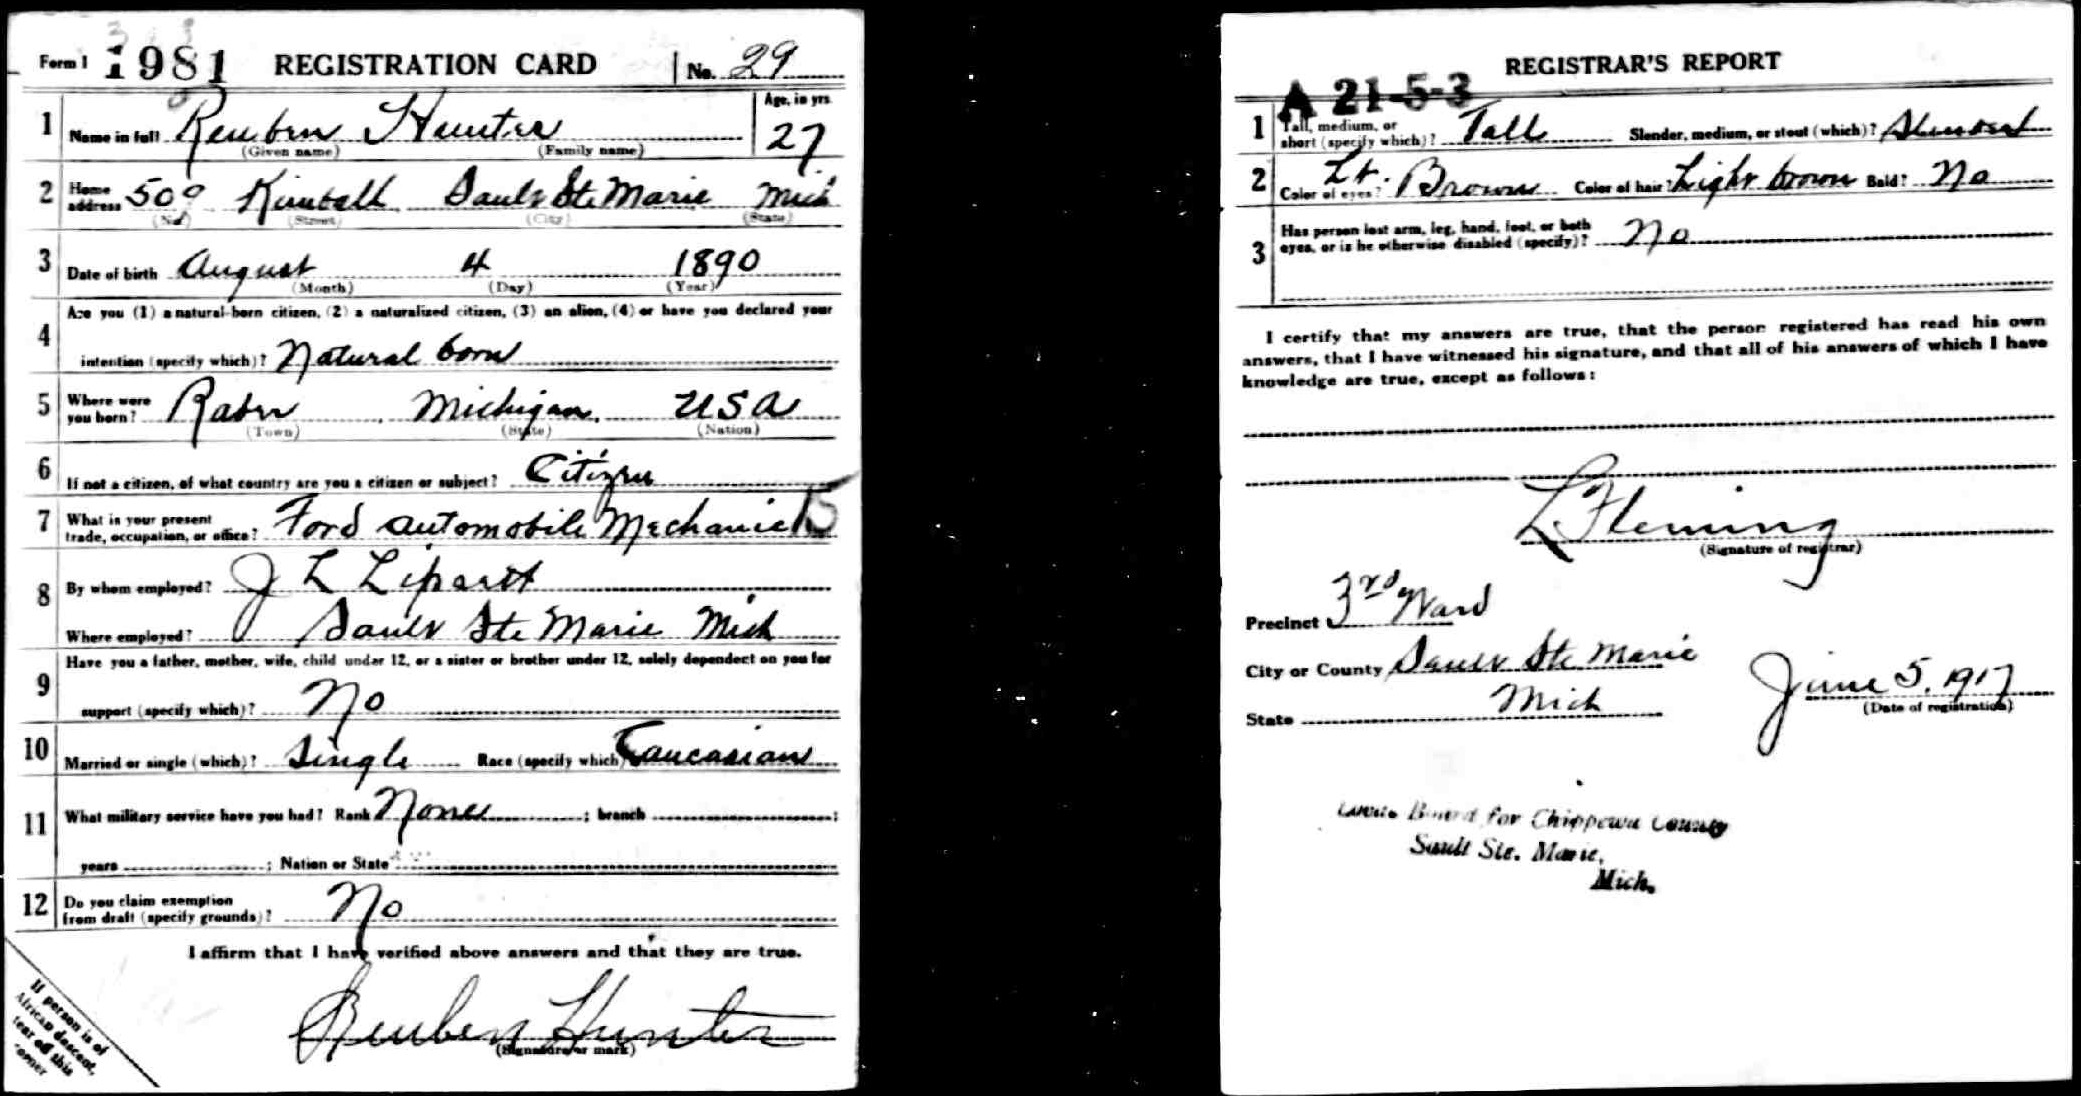 Form 1 1981 REGISTRATION CARD No. 29
1 Name in full Reuben Hunter Age, in yrs. 27
(Given name) (Family name)
2 Home address 509 Kimball Sault Ste Marie Mich
(No.) (Street) (City) (State)
3 Date of birth August 4 1890
(Month) (Day) (Year)
Are you (1) a natural-born citizen, (2) a naturalized citizen, (3) an alien, (4) or have you declared your
4 intention (specify which)? Natural born
5 Where were you born? Raber, Michigan, USA
(Town) (State) (Nation)
6 If not a citizen, of what country are you a citizen or subject? Citizen
7 What is your present trade, occupation, or office? Ford automobile Mechanic 15
8 By whom employed? J L Lipsett
Where employed? Sault Ste Marie Mich
Have you a father, mother, wife, child under 12, or a sister or brother under 12, solely dependent on you for
9 support (specify which)? No
10 Married or single (which)? Single Race (specify which) Caucasian
11 What military service have you had? Rank None ; branch ;
years ; Nation or State
12 Do you claim exemption from draft (specify grounds)? No
I affirm that I have verified above answers and that they are true.
Reuben Hunter
(Signature or mark)
If person is of
African descent,
tear off this
corner
REGISTRAR'S REPORT
A 21-5-3
1 Tall, medium, or short (specify which)? Tall Slender, medium, or stout (which)?
2 Color of eyes? Lt. Brown Color of hair? Light brown Bald? No
3 Has person lost arm, leg, hand, foot, or both
eyes, or is he otherwise disabled (specify)? No
I certify that my answers are true, that the person registered has read his own
answers, that I have witnessed his signature, and that all of his answers of which I have
knowledge are true, except as follows:
L Fleming
(Signature of registrar)
Precinct 3rd Ward
City or County Sault Ste Marie
State Mich June 5, 1917
(Date of registration)
Local Board for Chippewa County
Sault Ste. Marie,
Mich.